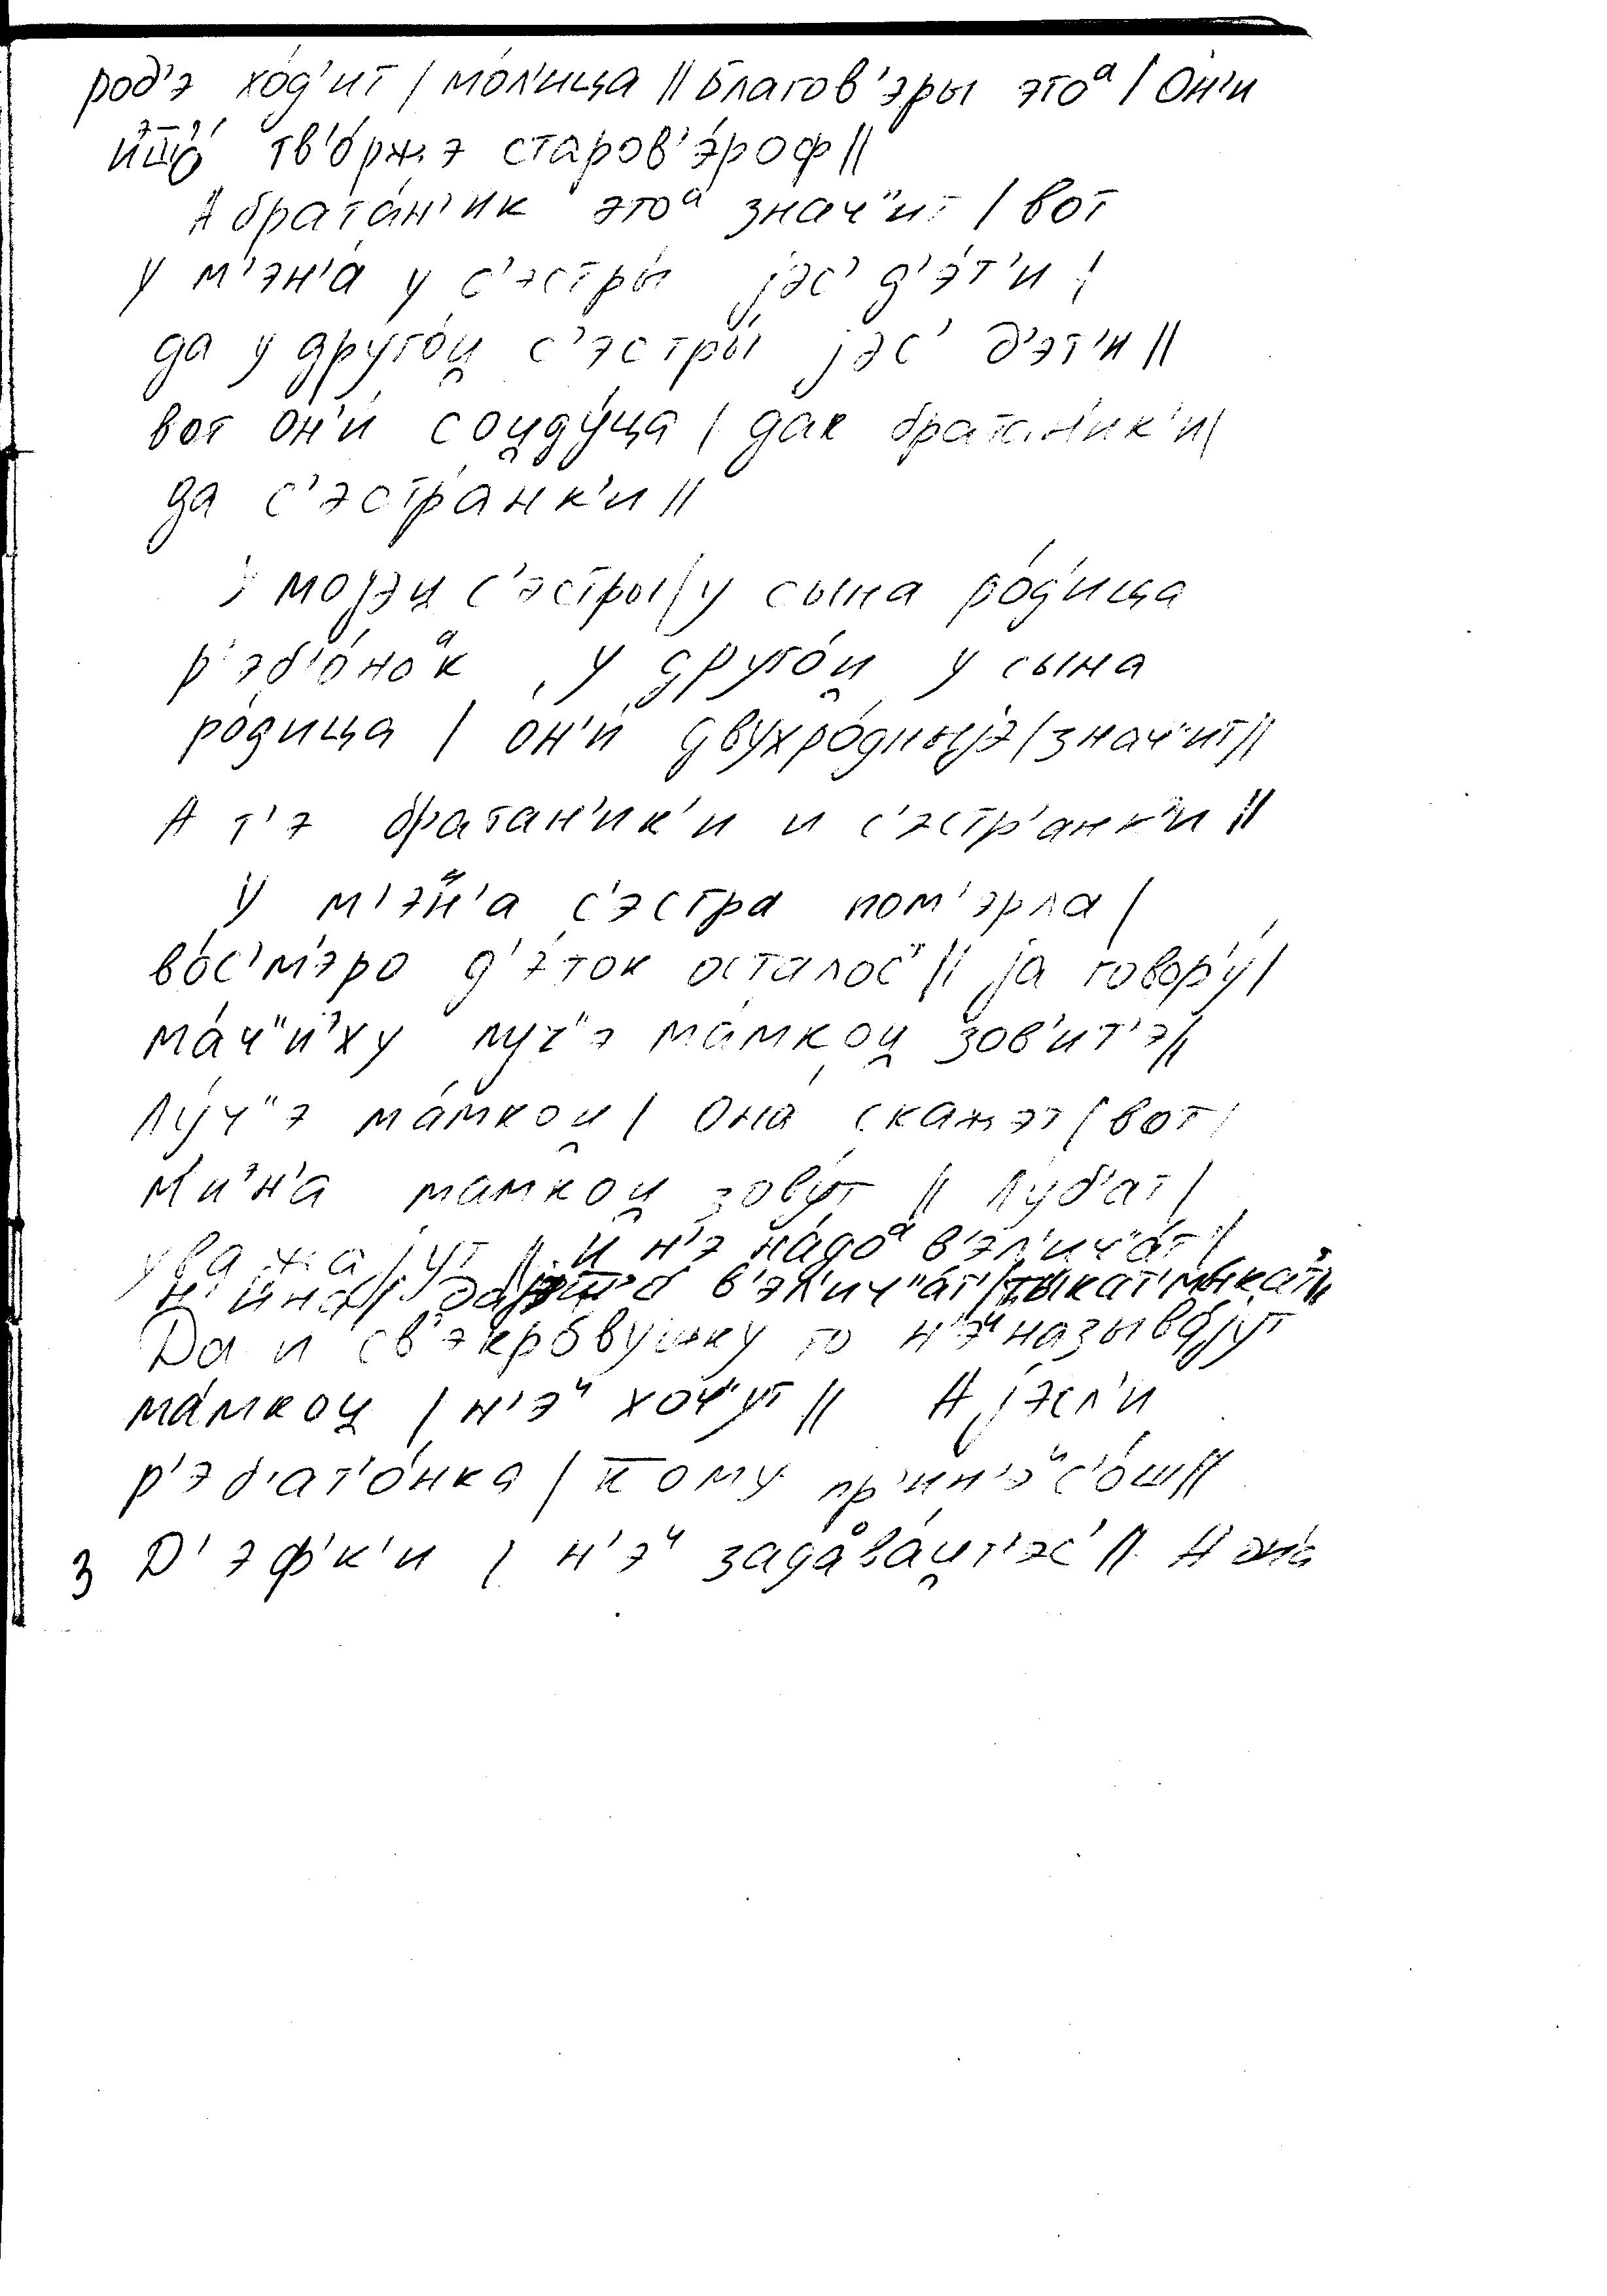 род'э хо́д'ит / мо́л'ица // Благов'э́ры этоᵃ / О́н'и
тв'о́ржэ старов'э́роф //
А брата́н'ик этоᵃ знач"ит / вот
у м'эн'а́ у с'эстры́ jэс' д'э́т'и /
да у друго́и̯ с'эстры́ jэс' д'эт'и //
вот он'и́ сои̯ду́ца / дак брата́н'ик'и /
да с'эстра́нк'и //
У моjэи̯ с'эстры / у сына ро́д'ица
р'эб'о́ноᵃк , у друго́и̯ у сына
ро́дица / он'и́ двухро́дныjэ / знач"ит //
А т'э братан'ик'и и с'эстр'анк'и //
У м'эᶦᶦн'а с'эстра пом'эрла /
во́с'м'эро д'э́ток осталос' // jа говор'у́ /
ма́ч"иᵌху луч"э ма́мкои̯ зов'ит'э //
Лу́ч"э ма́мкои̯ / Она́ скажэт / вот /
М'иᵌн'а мамкои̯ зову́т // Л'у́б'ат /
уважаjут // И н'э на́доᵃ в'эл'ич"а́т' /
в'эл'ич"а́т' / ты́кат' мы́кат' //
Да и св'экро́вушку то н'эᶦᶦ называ́jут
ма́мкои̯ / н'эᶦᶦ хоч"ут // А jэсл'и
р'эб'ат'о́нка / кому пр'ин'эᶦᶦс'о́ш //
3 Д'эфк'и / н'эᶦᶦ задаᵒва́и̯т'эс' // А она́